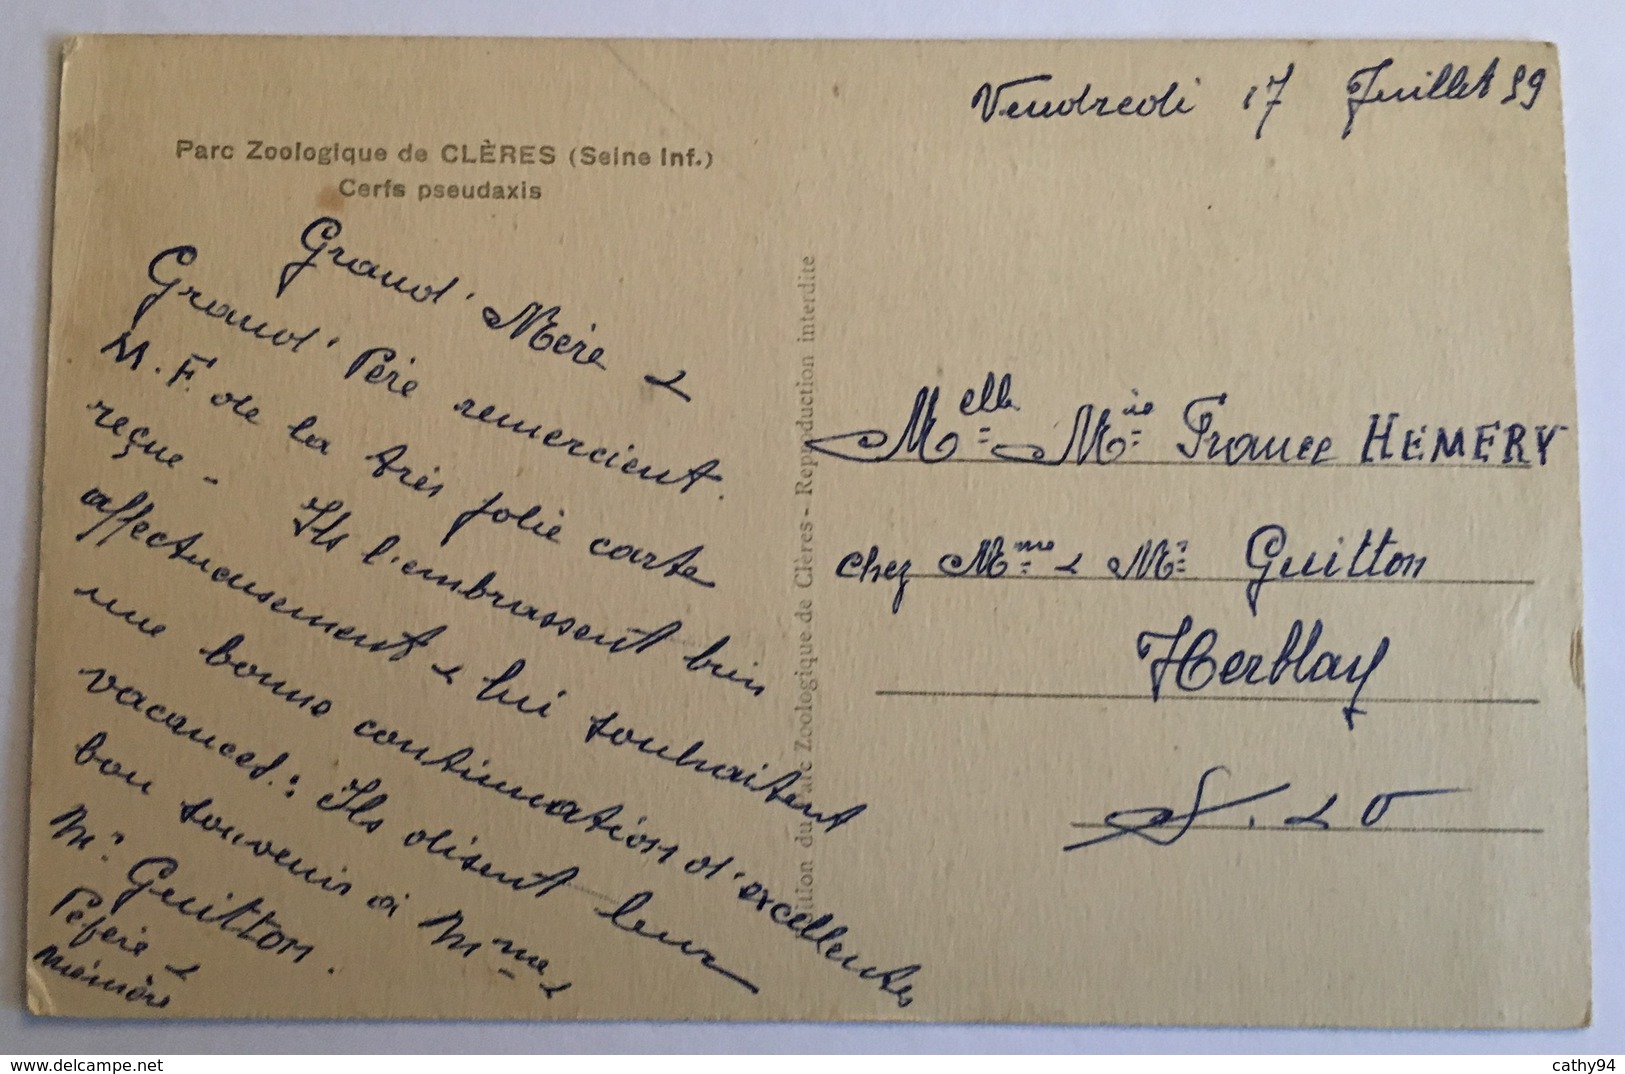 Vendredi 17 Juillet 59
Parc Zoologique de CLÈRES (Seine Inf.)
Cerfs pseudaxis
Grand' Mère &
Grand' Père remercient
M. F. de la très jolie carte
reçue - Ils l'embrassent bien
affectueusement & lui souhaitent
une bonne continuation d'excellentes
vacances. Ils disent leur
bon souvenir à Mme &
Mr Guitton.
Péfère &
Mémère
Edition du Parc Zoologique de Clères - Reproduction interdite
Melle Mie France HEMERY
chez Mme & Mr Guitton
Herblay
S. & O
cathy94